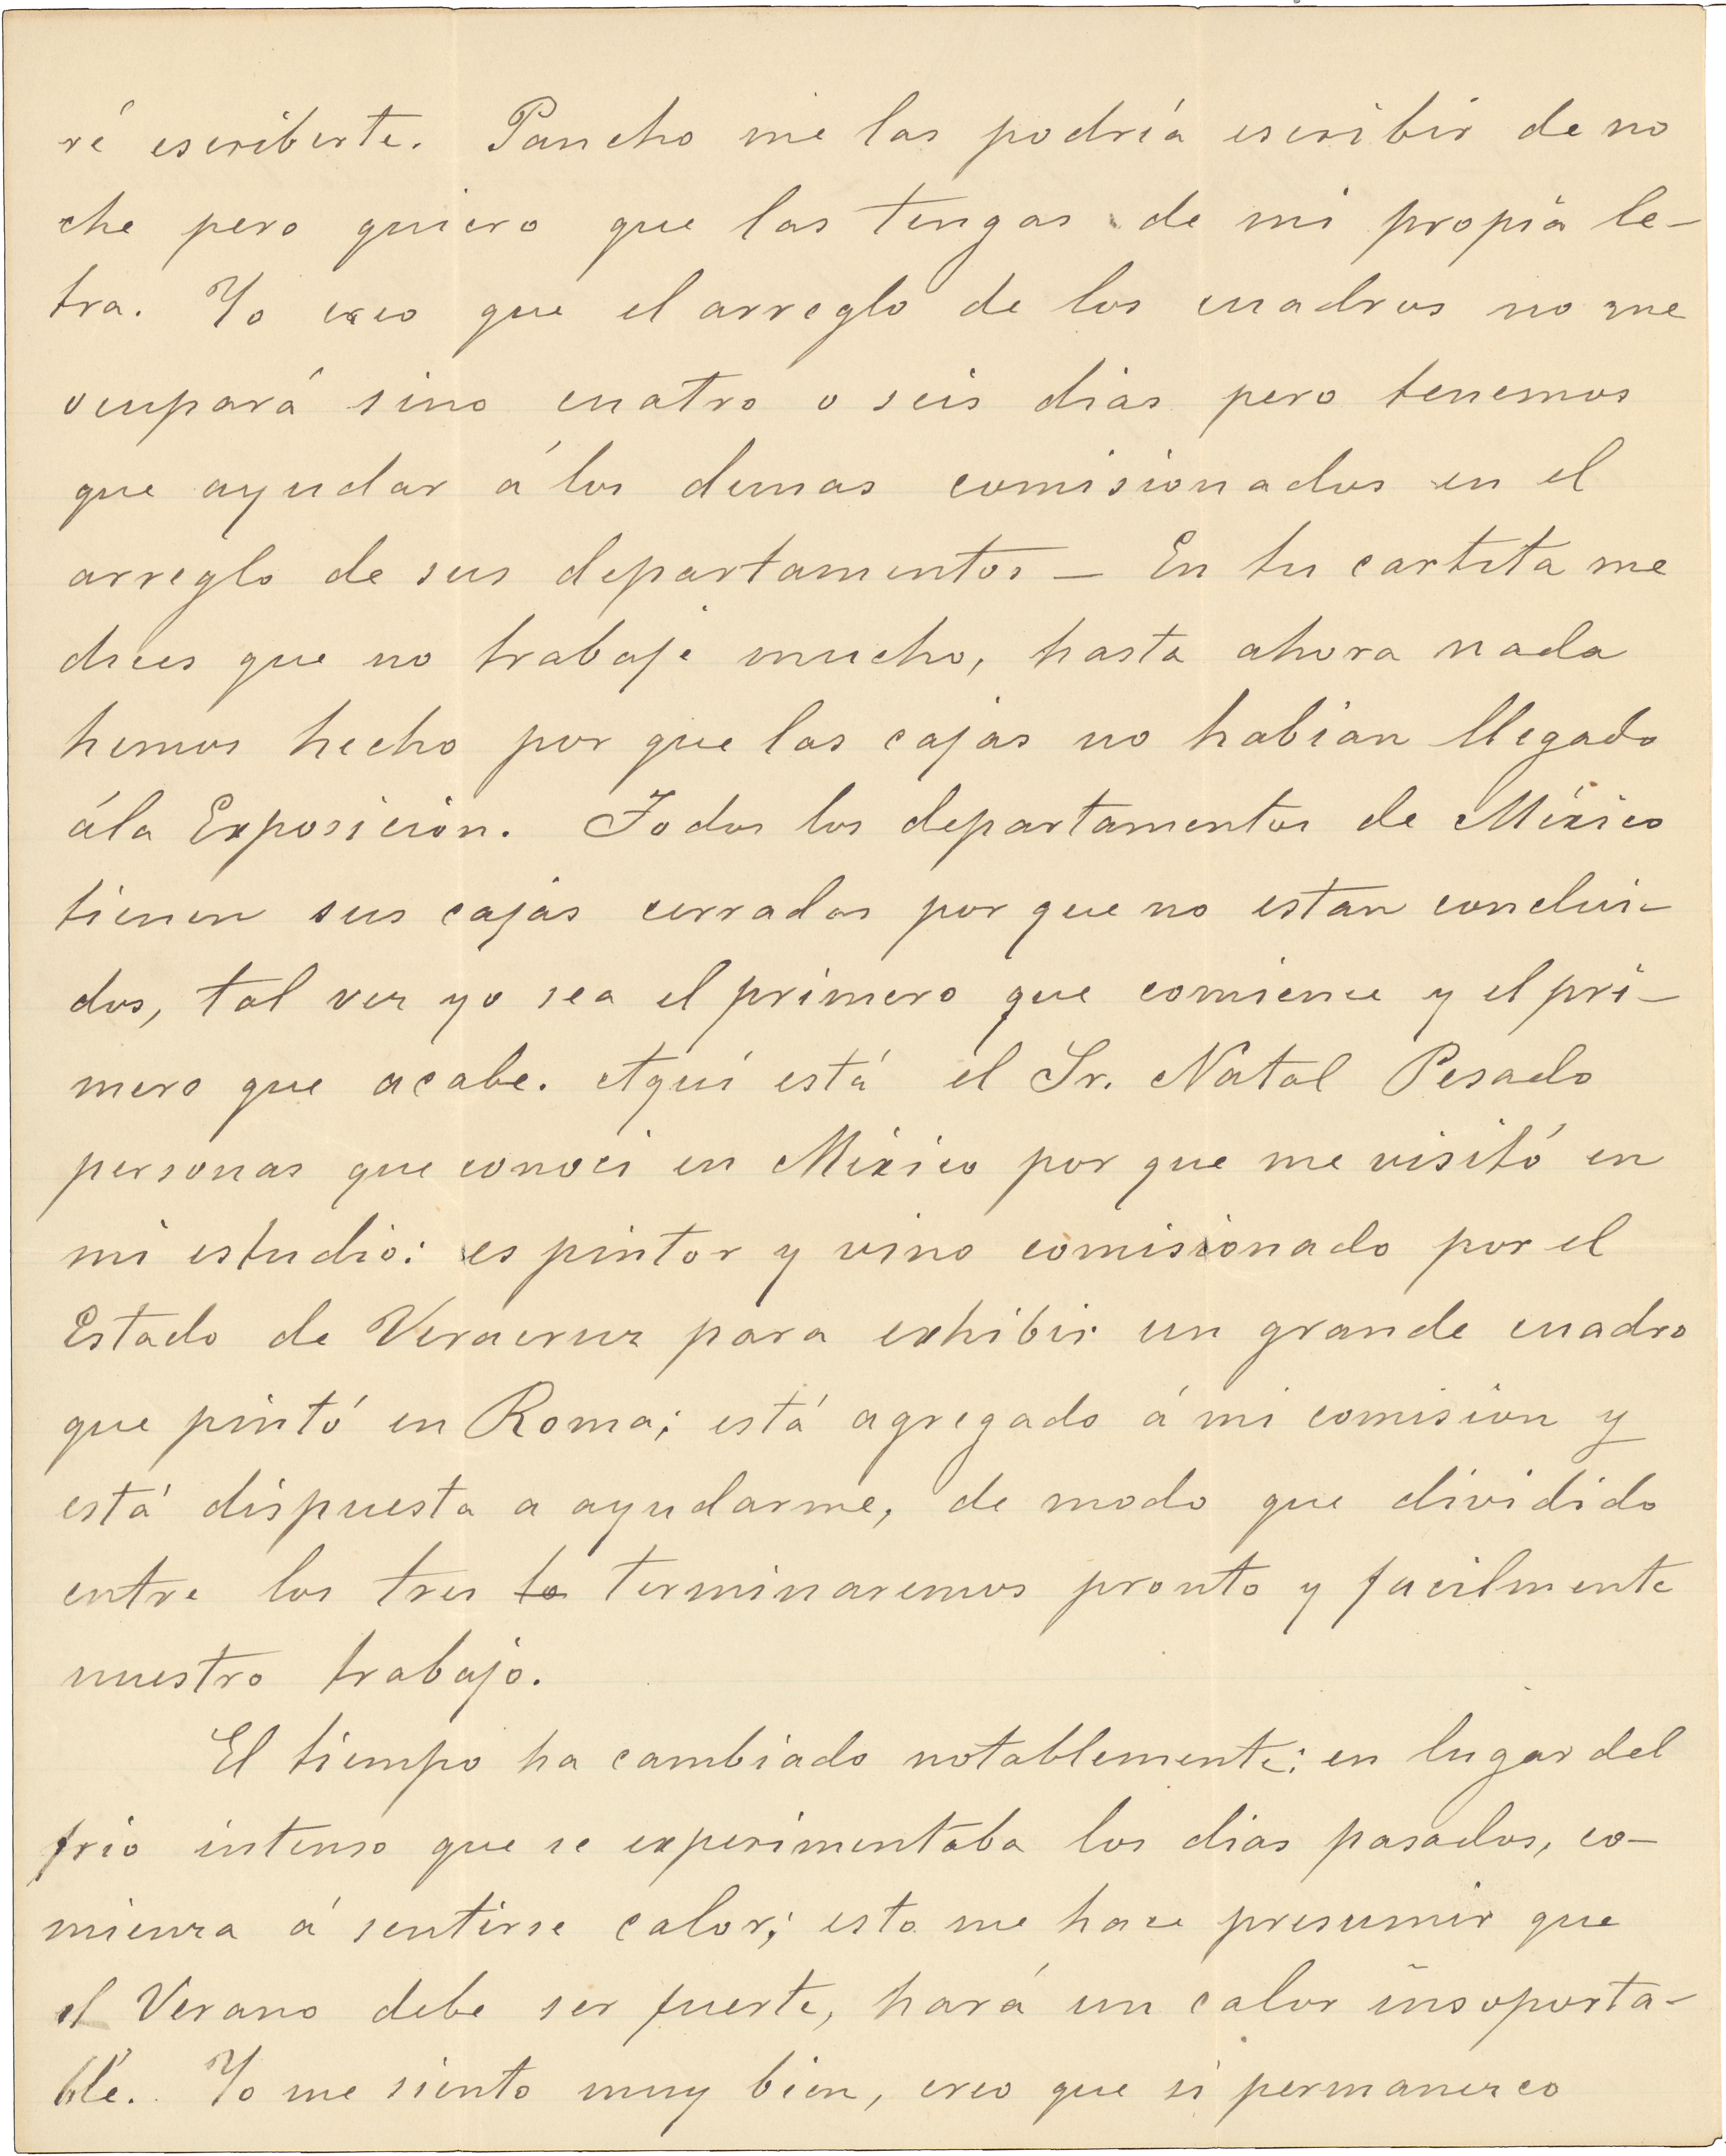 ré escriberte. Pancho me las podría escribir de no
che pero quiero que las tengas de mi propia le-
tra. Yo creo que el arreglo de los cuadros no me
ocupará sino cuatro o seis dias pero tenemos
que ayudar á los demas comisionados en el
arreglo de sus departamentos — En tu cartita me
dices que no trabaje mucho, hasta ahora nada
hemos hecho por que las cajas no habian llegado
ála Exposición. Todos los departamentos de México
tienen sus cajas cerradas por que no estan conclui-
dos, tal vez yo sea el primero que comience y el pri-
mero que acabe. Aquí está el Sr. Natal Pesado
personas que conoci en México por que me visitó en
mi estudio: es pintor y vino comisionado por el
Estado de Veracruz para exhibir un grande cuadro
que pintó en Roma; está agregado á mi comision y
está dispuesta a ayudarme, de modo que dividido
entre los tres lo terminaremos pronto y facilmente
nuestro trabajo.
El tiempo ha cambiado notablemente: en lugar del
frio intenso que se experimentaba los dias pasados, co-
mienza á sentirse calor; esto me hace presumir que
el Verano debe ser fuerte, hará un calor insoporta-
ble. Yo me siento muy bien, creo que si permanezco